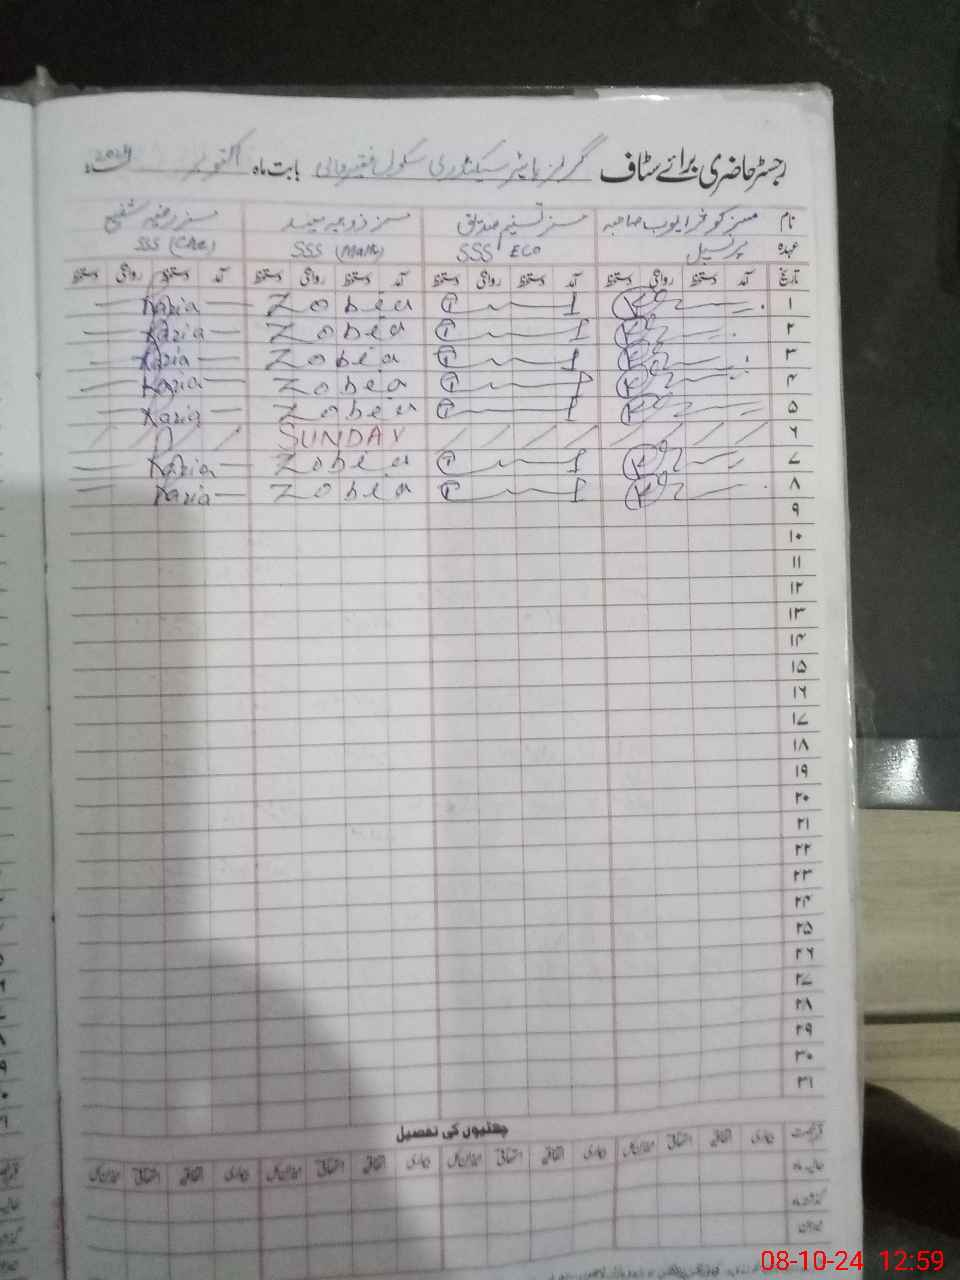 رجسٹر حاضری برائے سٹاف گرلز ہائیر سیکنڈری سکول فقیر والی بابت ماہ اکتوبر 2024ء
نام مسز کوثر ایوب صاحبہ مسز تسنیم صدیق مسز زوبیہ مسز رضیہ شفیع
عہدہ پرنسپل SSS ECO SSS (Math) SSS (Che)
تاریخ آمد دستخط روانگی دستخط آمد دستخط روانگی دستخط آمد دستخط روانگی دستخط آمد دستخط روانگی دستخط
۱ Zobea Razia
۲ Zobea Razia
۳ Zobea Razia
۴ Zobea Razia
۵ Zobea Razia
۶ SUNDAY
۷ Zobea Razia
۸ Zobea Razia
۹
۱۰
۱۱
۱۲
۱۳
۱۴
۱۵
۱۶
۱۷
۱۸
۱۹
۲۰
۲۱
۲۲
۲۳
۲۴
۲۵
۲۶
۲۷
۲۸
۲۹
۳۰
۳۱
چھٹیوں کی تفصیل
بیماری اتفاقی استحقاقی میزان کل بیماری اتفاقی استحقاقی میزان کل بیماری اتفاقی استحقاقی میزان کل بیماری اتفاقی استحقاقی میزان کل
حالیہ ماہ
گذشتہ ماہ
میزان
08-10-24 12:59